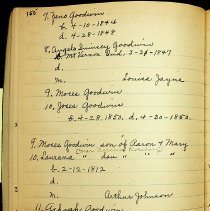 150
7. Zeno Goodwin
b. 4-10-1844
d. 4-28-1848
8. Angelo Quincey Goodwin
b. Mt Vernon Ind. 3-24-1847
d.
m. Louisa Jayne
9. Moses Goodwin
10. Joses Goodwin
b. 4-28-1850. d. 4-30-1850.
9. Moses Goodwin son of Aaron & Mary
10. Laurena " dau " " "
b. 2-12-1812
d.
m. Arthur Johnson
Goodwin